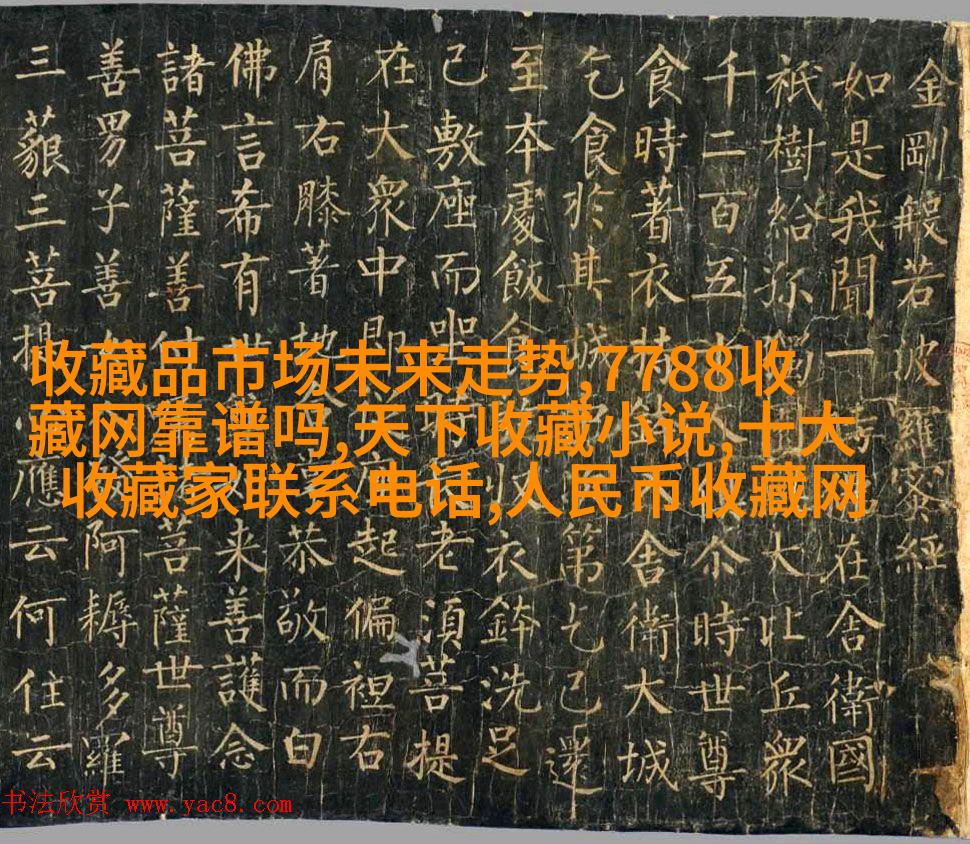 金剛般若波羅蜜經
如是我聞一在舍衛國
祇樹給孤獨大比丘衆
千二百五尒時世尊
食時著衣持舍衛大城
乞食於其城第乞已還
至本處飯食衣鉢洗足
已敷座而坐老須菩提
在大衆中即起偏袒右
肩右膝著地恭敬而白
佛言希有世来善護念
諸菩薩善付菩薩世尊
善男子善女阿耨多羅
三藐三菩提應云何住云
收藏品市场未来走势,7788收
藏网靠谱吗,天下收藏小说,十大
收藏家联系电话,人民币收藏网
书法欣赏 www.yac8.com